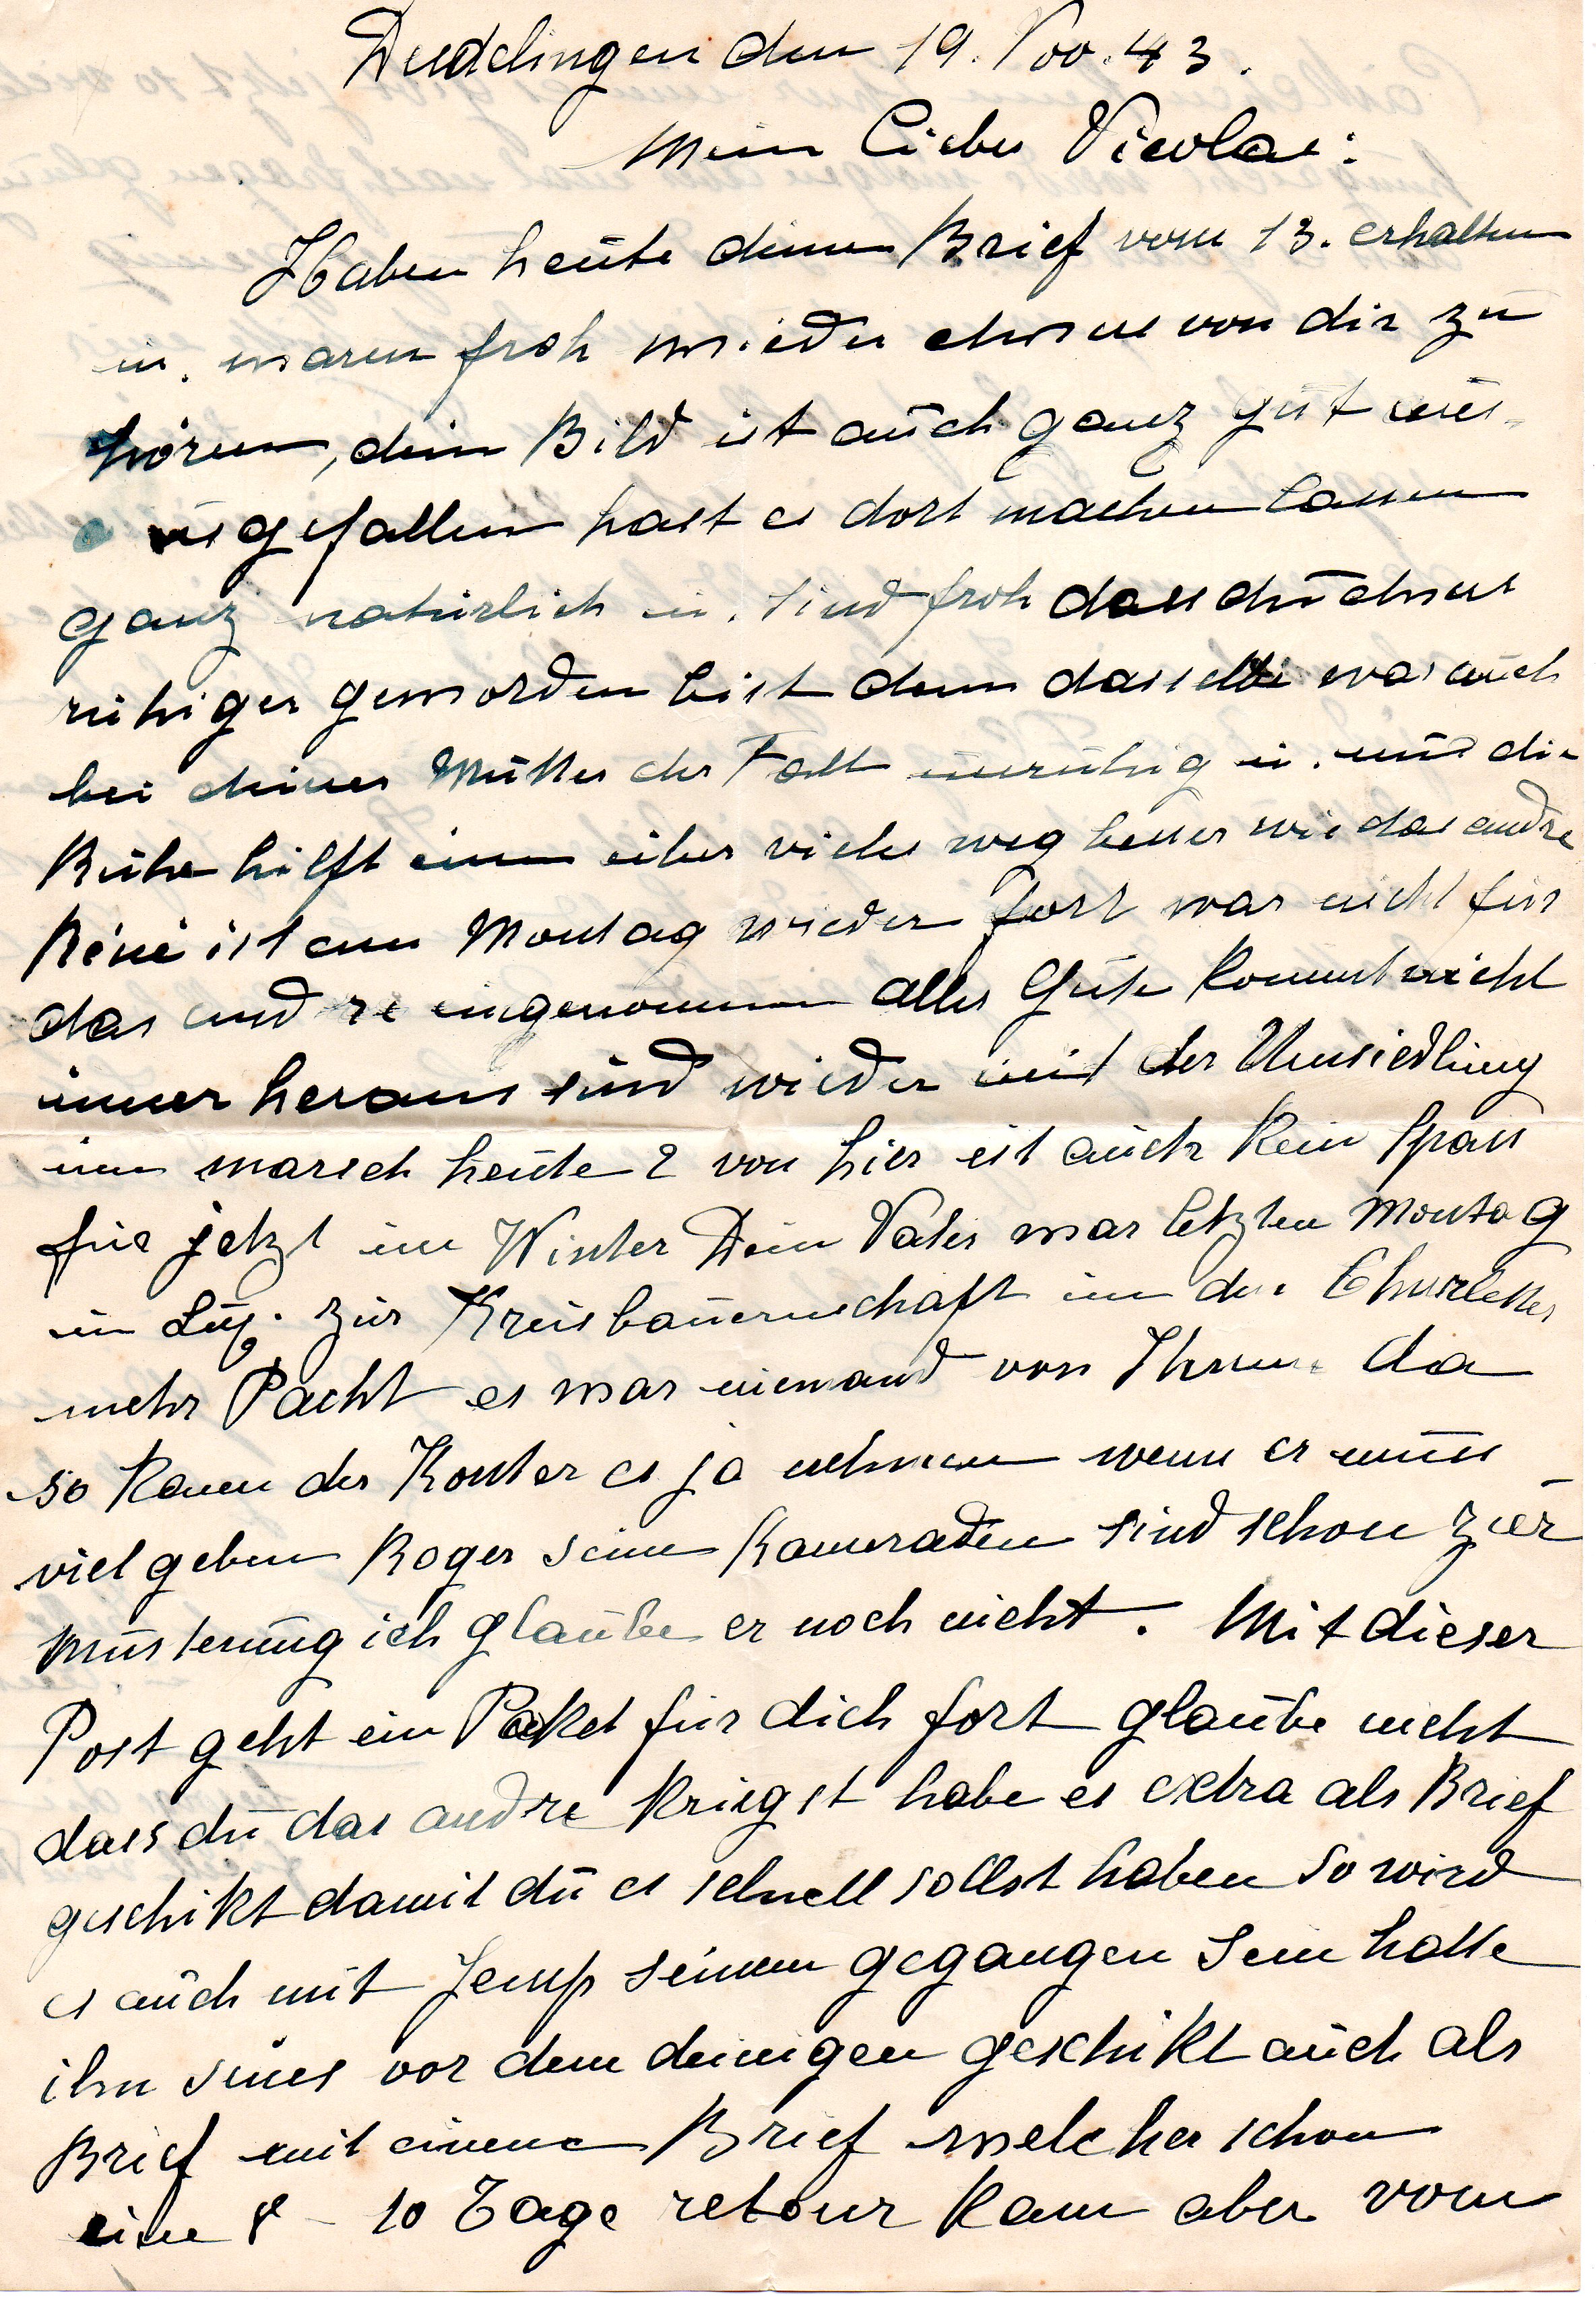 Düdelingen den 19. Nov. 43.
Mein Lieber Nicolas:
Haben heute deinen Brief vom 13. erhalten
u. waren froh wieder etwas von dir zu
hören, dein Bild ist auch ganz gut aus-
gefallen hast es dort machen lassen
ganz natürlich u. sind froh dass du etwas
ruhiger geworden bist denn dasselbe war auch
bei deiner Mutter der Fall unruhig u. nun die
Ruhe hilft einem über vieles weg besser wie das andre
Réné ist am Montag wieder fort war nicht für
das andre eingenommen alles Gute kommt nicht
immer heraus sind wieder mit der Umsiedlung
im marsch heute 2 von hier ist auch kein Spass
für jetzt im Winter Dein Vater war letzten Montag
in Lux. zur Kreisbauernschaft um der
mehr Pacht es war niemand von Ihnen da
so kann der Konter es ja nehmen wenn er muss
viel geben Roger seine Kameraden sind schon zur
Musterung ich glaube er noch nicht. Mit dieser
Post geht ein Paket für dich fort glaube nicht
dass du das andre kriegst habe es extra als Brief
geschikt damit du es schnell sollst haben so wird
es auch mit Jemp seinem gegangen sein hatte
ihm seines vor dem deinigen geschikt auch als
Brief mit einem Brief welcher schon
eine 8 - 10 Tage retour kam aber vom